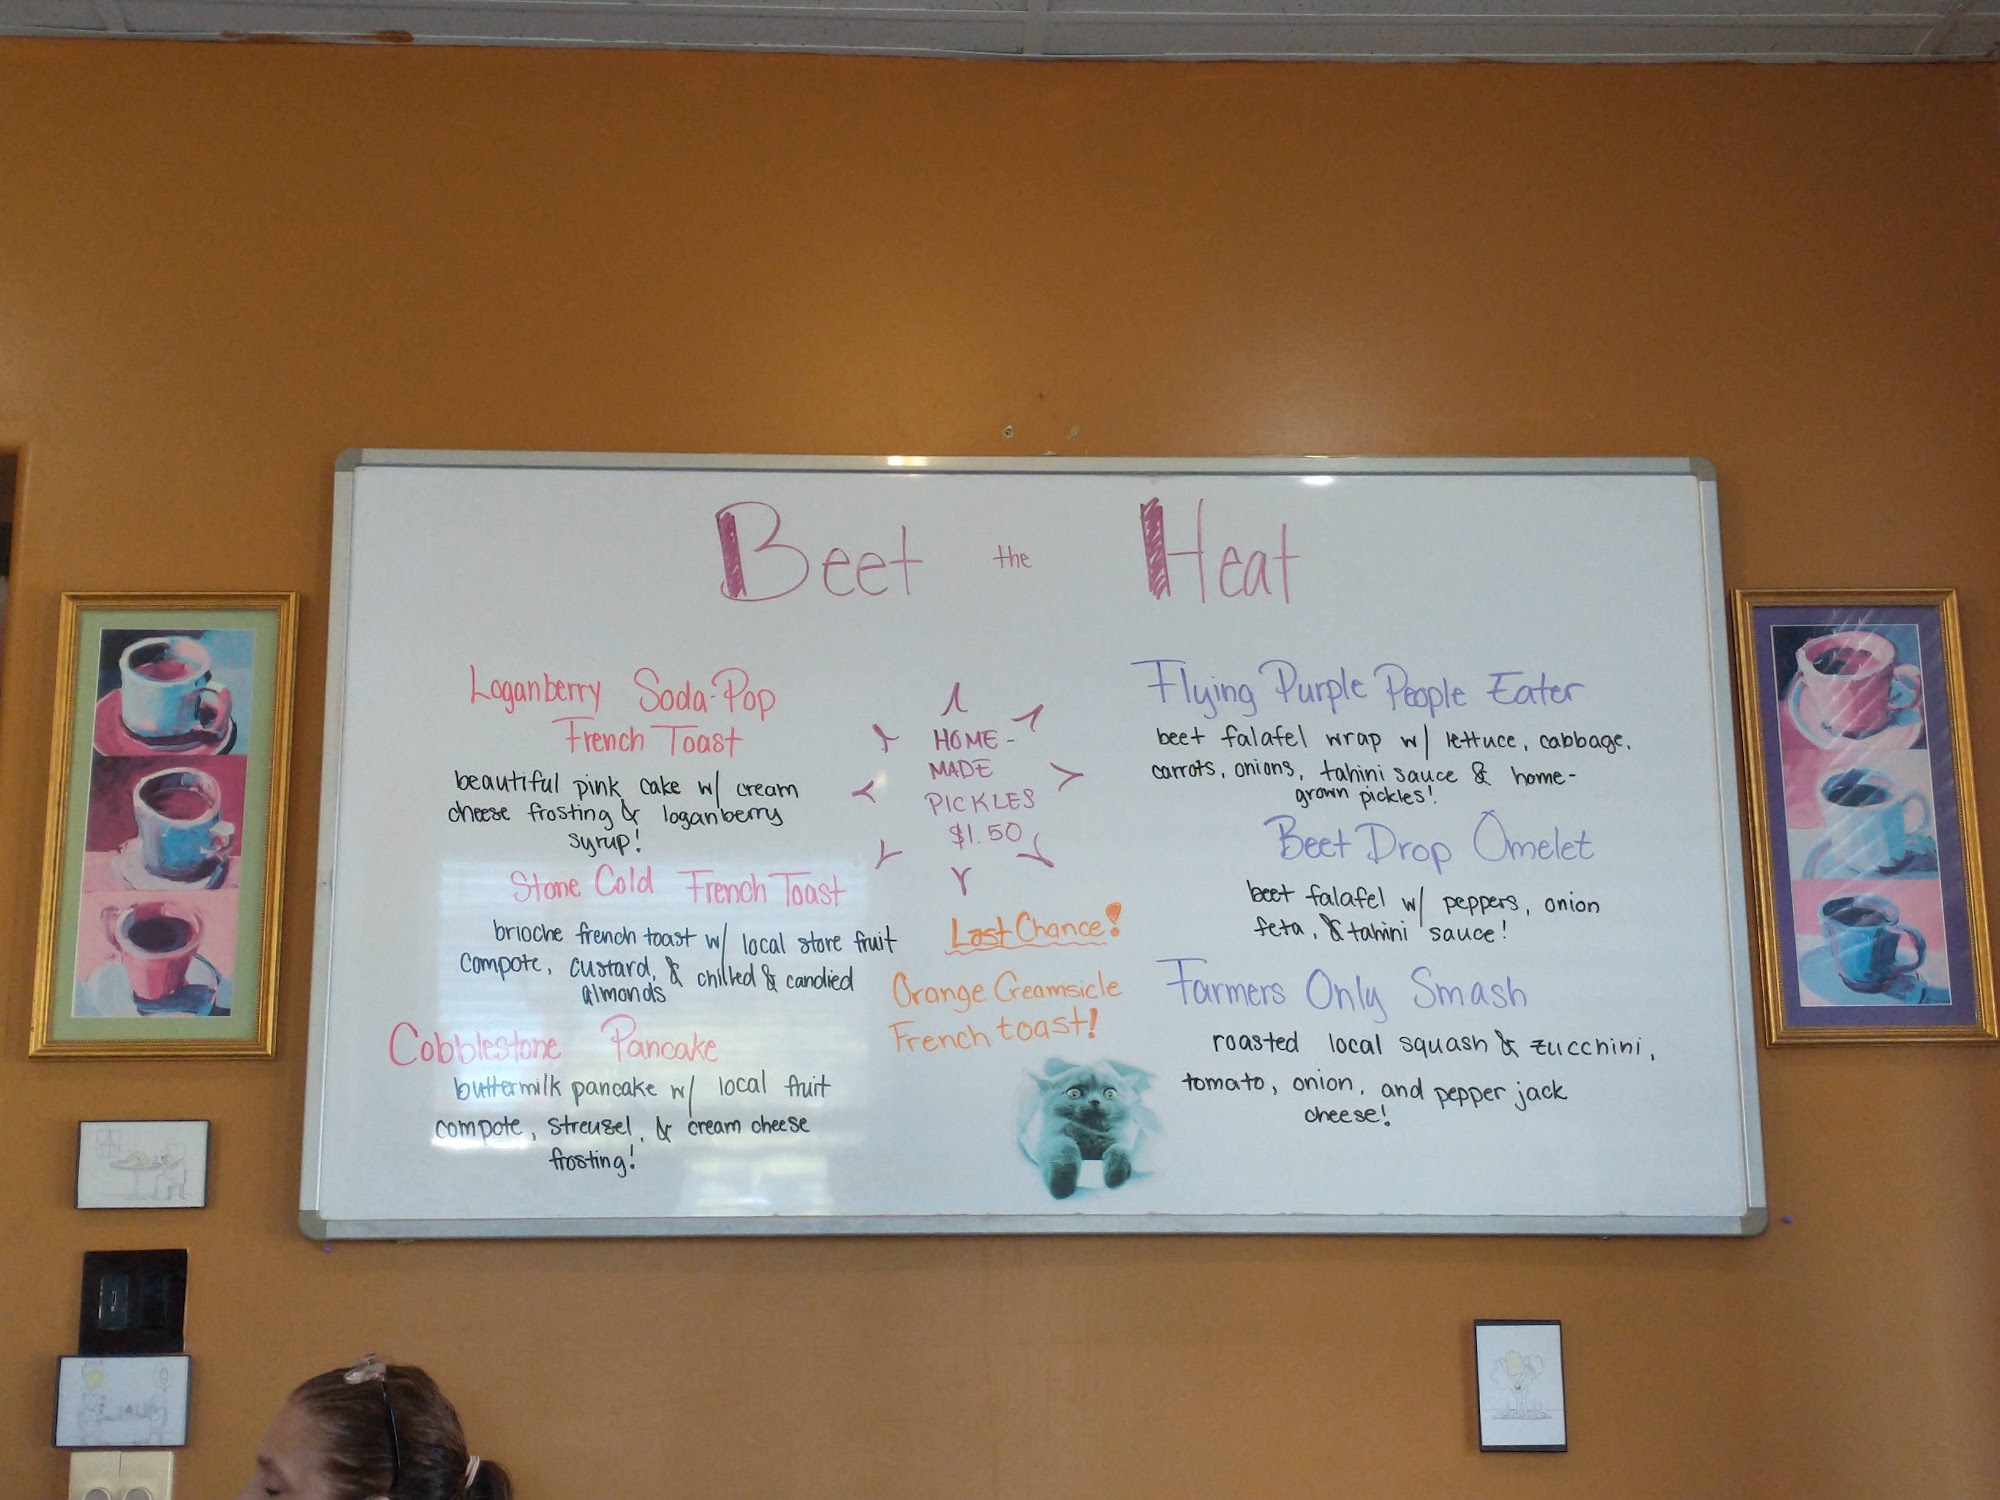 Beet the Heat
Loganberry Soda-Pop
French Toast
beautiful pink cake w/ cream
cheese frosting & loganberry
syrup!
Stone Cold French Toast
brioche french toast w/ local store fruit
compote, custard, & chilled & candied
almonds
Cobblestone Pancake
buttermilk pancake w/ local fruit
compote, streusel, & cream cheese
frosting!
HOME-
MADE
PICKLES
$1.50
Last Chance!
Orange Creamsicle
French toast!
Flying Purple People Eater
beet falafel wrap w/ lettuce, cabbage,
carrots, onions, tahini sauce & home-
grown pickles!
Beet Drop Omelet
beet falafel w/ peppers, onion
feta, & tahini sauce!
Farmers Only Smash
roasted local squash & zucchini,
tomato, onion, and pepper jack
cheese!